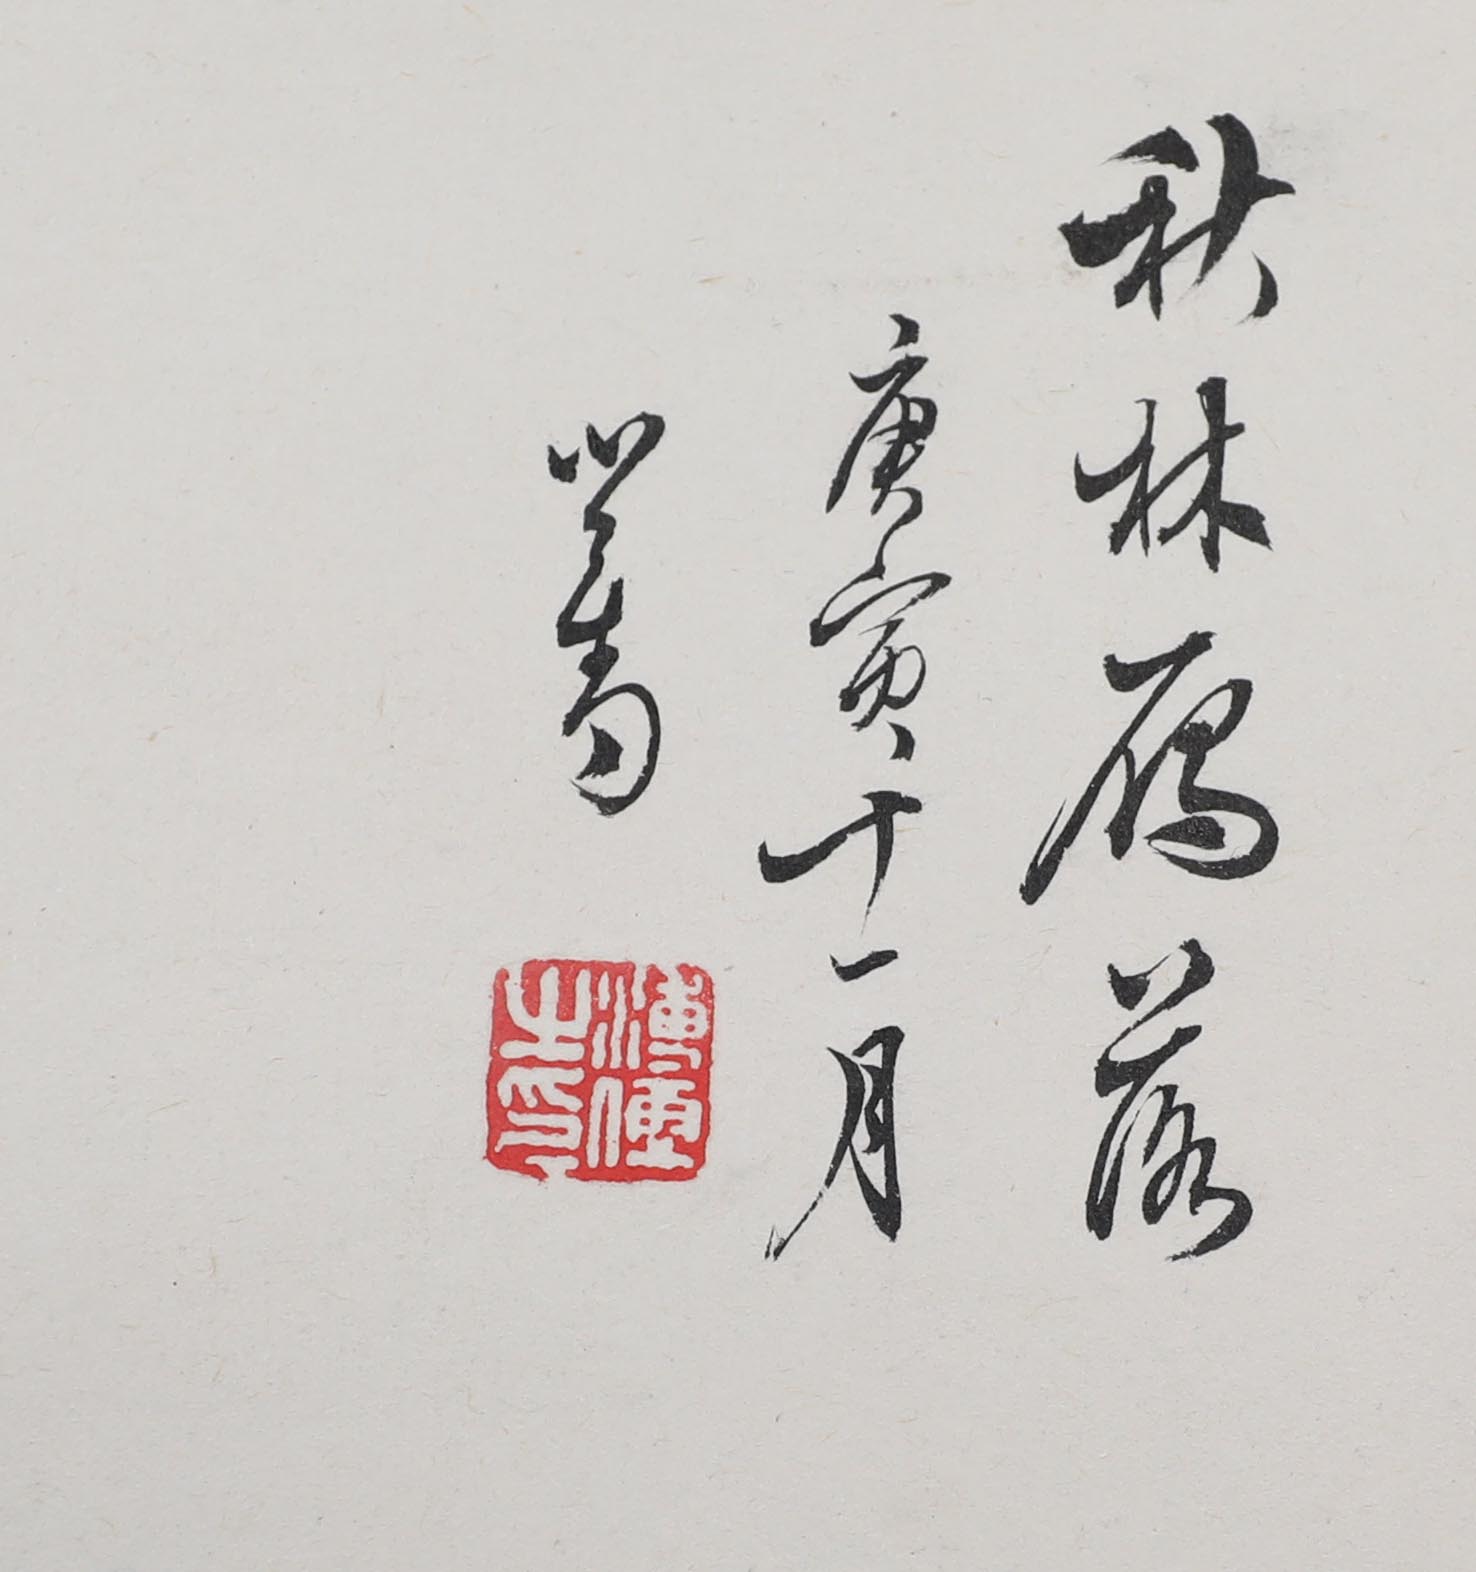 秋林鴈落
庚寅十一月
心畬
溥儒之印